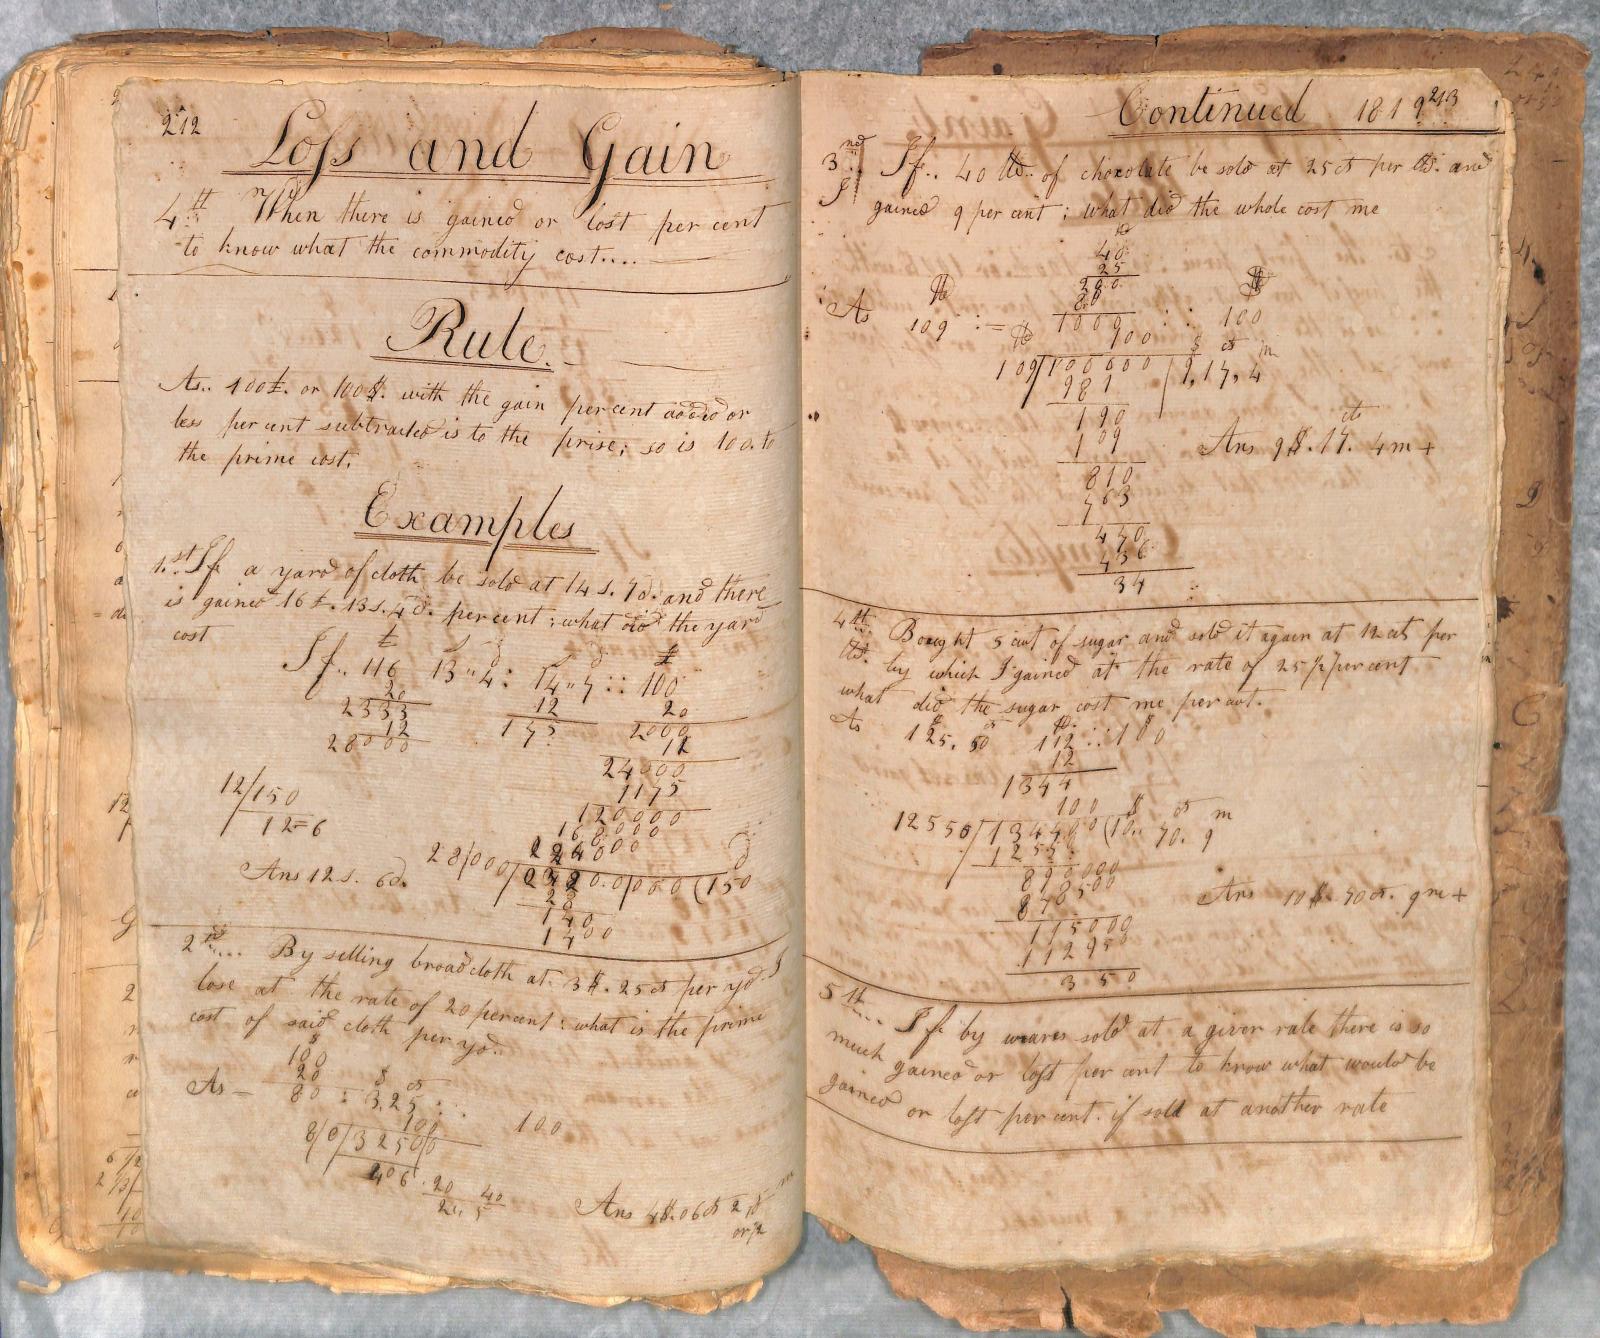 212
Loſs and Gain
4th When there is gained or lost per cent
to know what the commodity cost....
Rule.
As.. 100£. or 100$. with the gain per cent added or
less per cent subtracted is to the prise; so is 100. to
the prime cost.
Examples
1.st If a yard of cloth be sold at 14 s. 7d. and there
is gained 16£. 13s. 4d. per cent; what did the yard
cost
£ s d s d £
If.. 116 13"4: 14"7 :: 100
20 12 20
2333 175 2000
12 12
28000 24000
1175
12/150 120000
12=6 168000
24000
28/000 / 420.0/000 (150 d
Ans 12 s. 6d. 28
140
1400
2nd.... By selling broadcloth at 3$. 25cts per yd I
lose at the rate of 20 per cent: what is the prime
cost of said cloth per yd..
$
100
20 $ cts
As = 80 : 3,25 :: 100
100
8/0/3250/0
406. 20 40
Ans 4$. 06cts 2
or 1/2
Continued 1819 213
3rd If.. 40 lb.. of chocolate be sold at 25 cts per lb. and
I gained 9 per cent; what did the whole cost me
lb
40
25
$ 200 $
80
As 109 := 1000 :: 100
100 $ cts m
109/100000 9,17,4
981
190
109
cts
Ans 9$. 17. 4m +
810
763
470
436
34
4th Bought 5 cwt of sugar and sold it again at 12 cts per
lb. by which I gained at the rate of 25 1/2 per cent
what did the sugar cost me per cwt.
As $ cts lb. $
125. 50 112 :: 100
12
1344
100 $ cts m
12550/134400 (10.. 70. 9
1255
890000
878500
Ans 10$. 70cts. 9m +
115000
112950
3.50
5th... If by wares sold at a given rate there is so
much gained or loſt per cent to know what would be
gained or loſt per cent. if sold at another rate